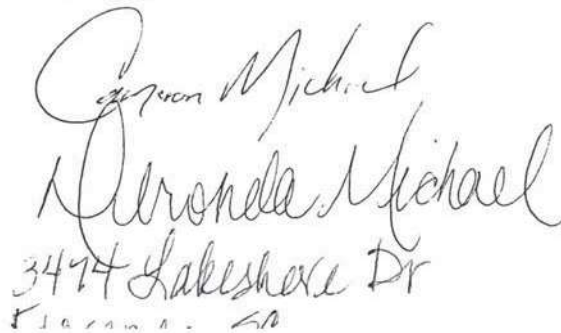 Cameron Michael
Michael
3474 Lakeshore Dr